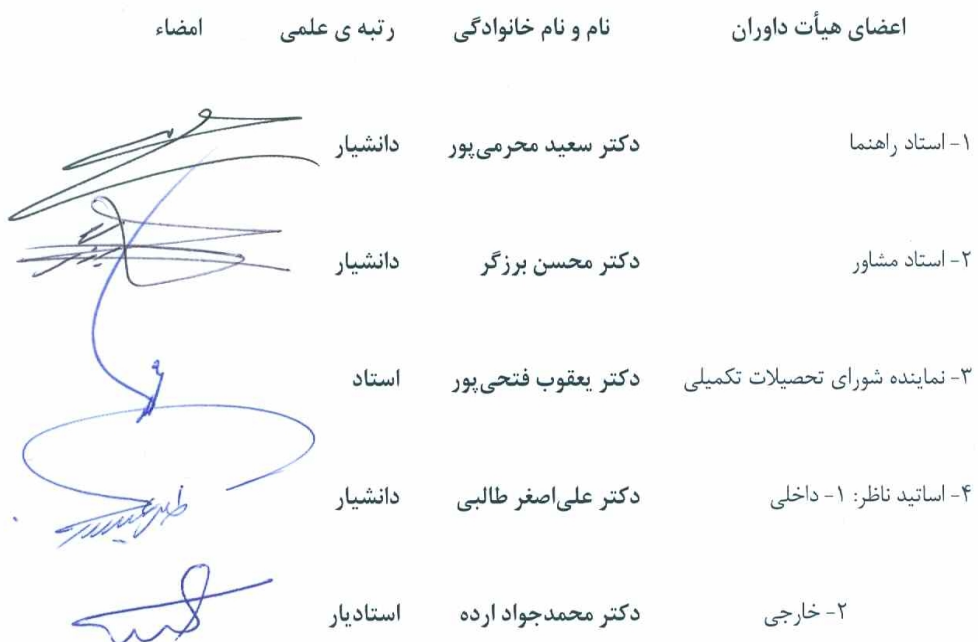 اعضای هیأت داوران نام و نام خانوادگی رتبه ی علمی امضاء
۱- استاد راهنما دکتر سعید محرمی‌پور دانشیار
۲- استاد مشاور دکتر محسن برزگر دانشیار
۳- نماینده شورای تحصیلات تکمیلی دکتر یعقوب فتحی‌پور استاد
۴- اساتید ناظر: ۱- داخلی دکتر علی‌اصغر طالبی دانشیار
۲- خارجی دکتر محمدجواد ارده استادیار